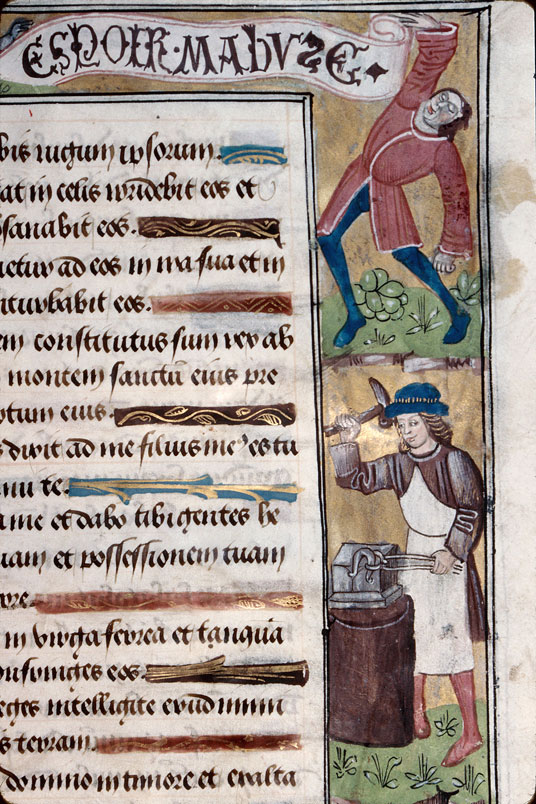 ESPOIR · MABUSE
bis iugum ipsorum.
at in celis irridebit eos et
sanabit eos.
uetur ad eos in ira sua et in
nturbabit eos.
em constitutus sum rex ab
montem sanctū eius pre
ptum eius.
dixit ad me filius meꝰ es tu
nui te.
ame et dabo tibi gentes he
uam et possessionem tuam
rre.
in virga ferrea et tanquā
onfringes eos.
eges intelligite erudimini
s terram.
domino in timore et exulta